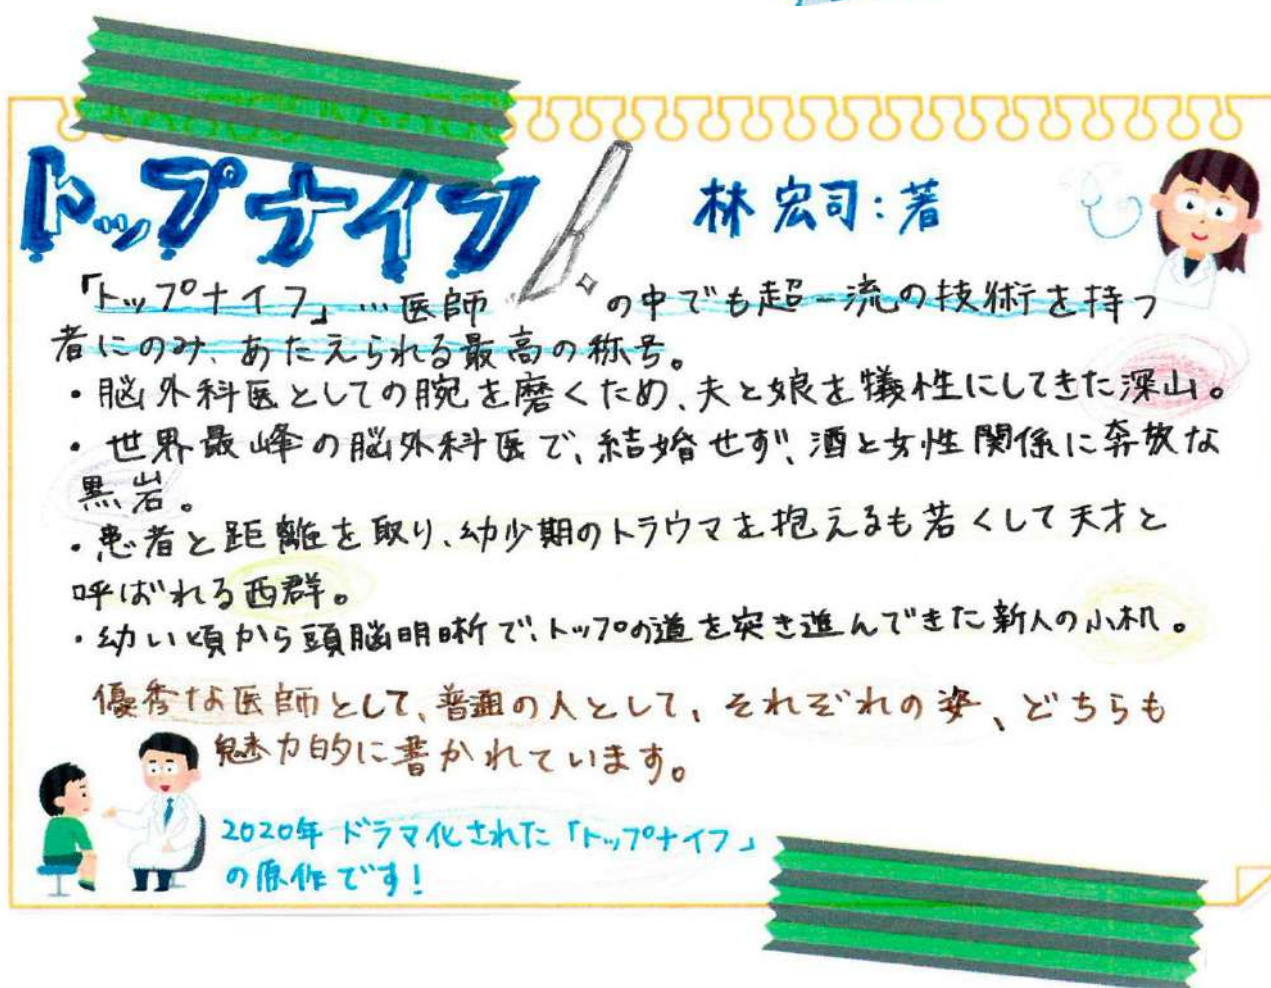 トップナイフ
林宏司:著
「トップナイフ」…医師の中でも超一流の技術を持つ
者にのみ、あたえられる最高の称号。
・脳外科医としての腕を磨くため、夫と娘を犠牲にしてきた深山。
・世界最峰の脳外科医で、結婚せず、酒と女性関係に奔放な
黒岩。
・患者と距離を取り、幼少期のトラウマを抱えるも若くして天才と
呼ばれる西群。
・幼い頃から頭脳明晰で、トップの道を突き進んできた新人の小机。
優秀な医師として、普通の人として、それぞれの姿、どちらも
魅力的に書かれています。
2020年ドラマ化された「トップナイフ」
の原作です!